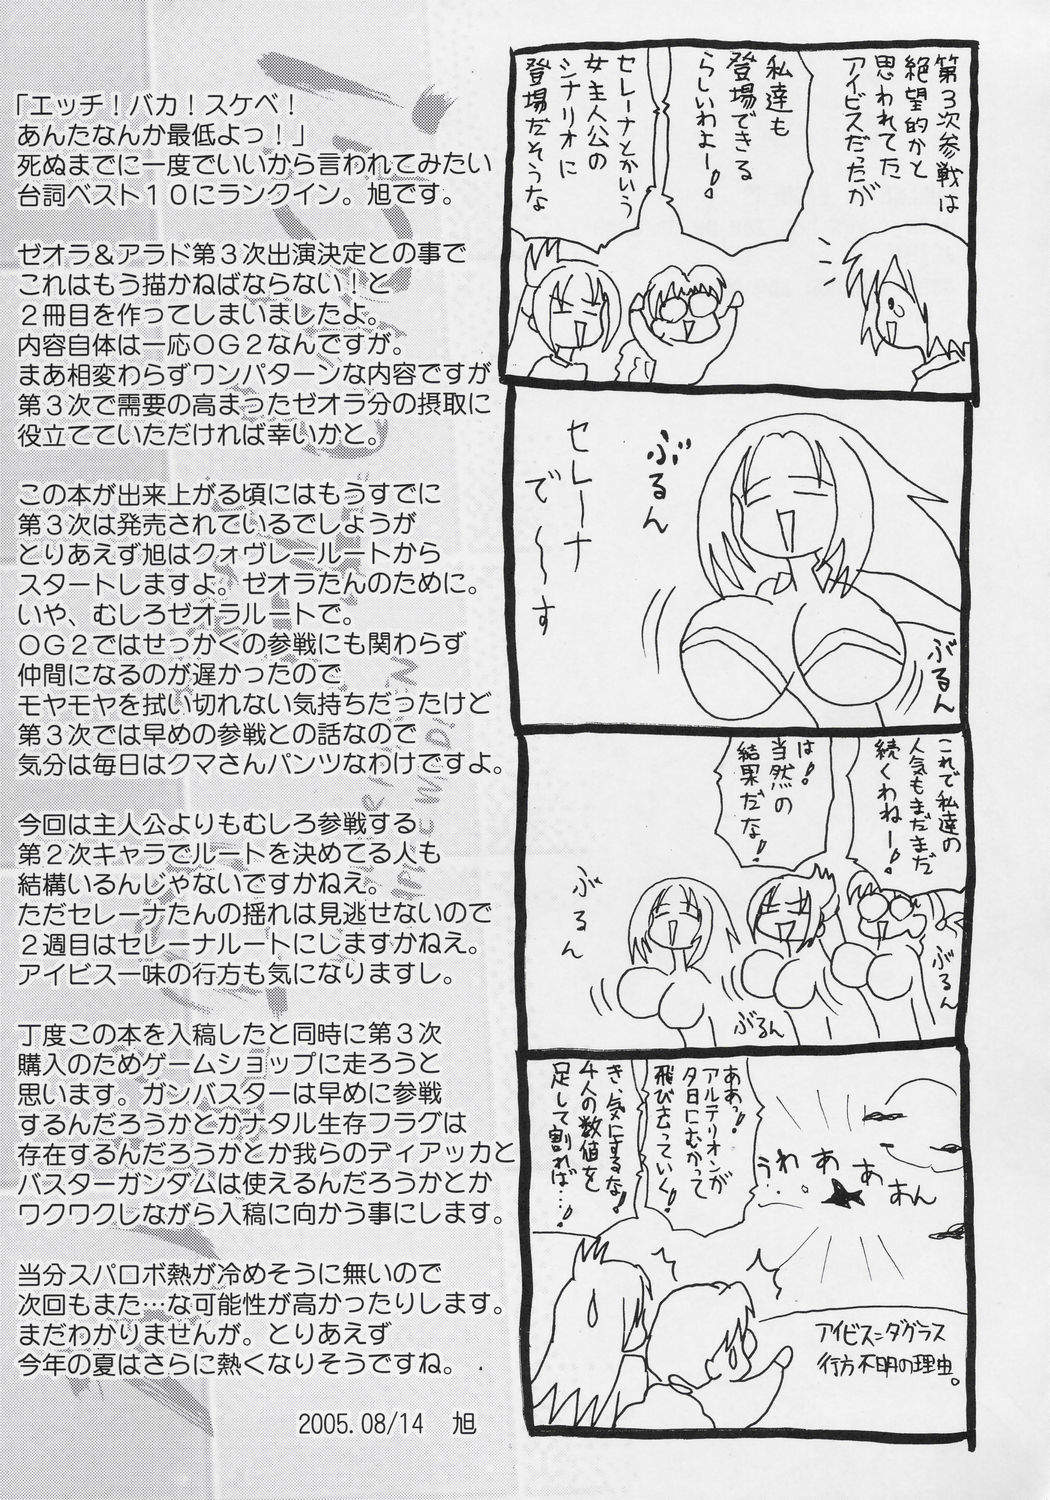 「エッチ！バカ！スケベ！
あんたなんか最低よっ！」
死ぬまでに一度でいいから言われてみたい
台詞ベスト１０にランクイン。旭です。
ゼオラ＆アラド第３次出演決定との事で
これはもう描かねばならない！と
２冊目を作ってしまいましたよ。
内容自体は一応ＯＧ２なんですが。
まあ相変わらずワンパターンな内容ですが
第３次で需要の高まったゼオラ分の摂取に
役立てていただければ幸いかと。
この本が出来上がる頃にはもうすでに
第３次は発売されているでしょうが
とりあえず旭はクォヴレールートから
スタートしますよ。ゼオラたんのために。
いや、むしろゼオラルートで。
ＯＧ２ではせっかくの参戦にも関わらず
仲間になるのが遅かったので
モヤモヤを拭い切れない気持ちだったけど
第３次では早めの参戦との話なので
気分は毎日はクマさんパンツなわけですよ。
今回は主人公よりもむしろ参戦する
第２次キャラでルートを決めてる人も
結構いるんじゃないですかねえ。
ただセレーナたんの揺れは見逃せないので
２週目はセレーナルートにしますかねえ。
アイビス一味の行方も気になりますし。
丁度この本を入稿したと同時に第３次
購入のためゲームショップに走ろうと
思います。ガンバスターは早めに参戦
するんだろうかとかナタル生存フラグは
存在するんだろうかとか我らのディアッカと
バスターガンダムは使えるんだろうかとか
ワクワクしながら入稿に向かう事にします。
当分スパロボ熱が冷めそうに無いので
次回もまた…な可能性が高かったりします。
まだわかりませんが。とりあえず
今年の夏はさらに熱くなりそうですね。
2005.08/14　旭
第３次参戦は
絶望的かと
思われてた
アイビスだったが
私達も
登場できる
らしいわよー！
セレーナとかいう
女主人公の
シナリオに
登場だそうな
セレーナ
で〜す
ぶるん
ぶるん
これで私達の
人気もまだまだ
続くわねー！
は！
当然の
結果だな！
ぶるん
ぶるん
ぶるん
うわぁあぁあん
ああっ！
アルテリオンが
夕日にむかって
飛び去っていく！
き、気にするな！
４人の数値を
足して割れば…！
アイビス＝ダグラス
行方不明の理由。